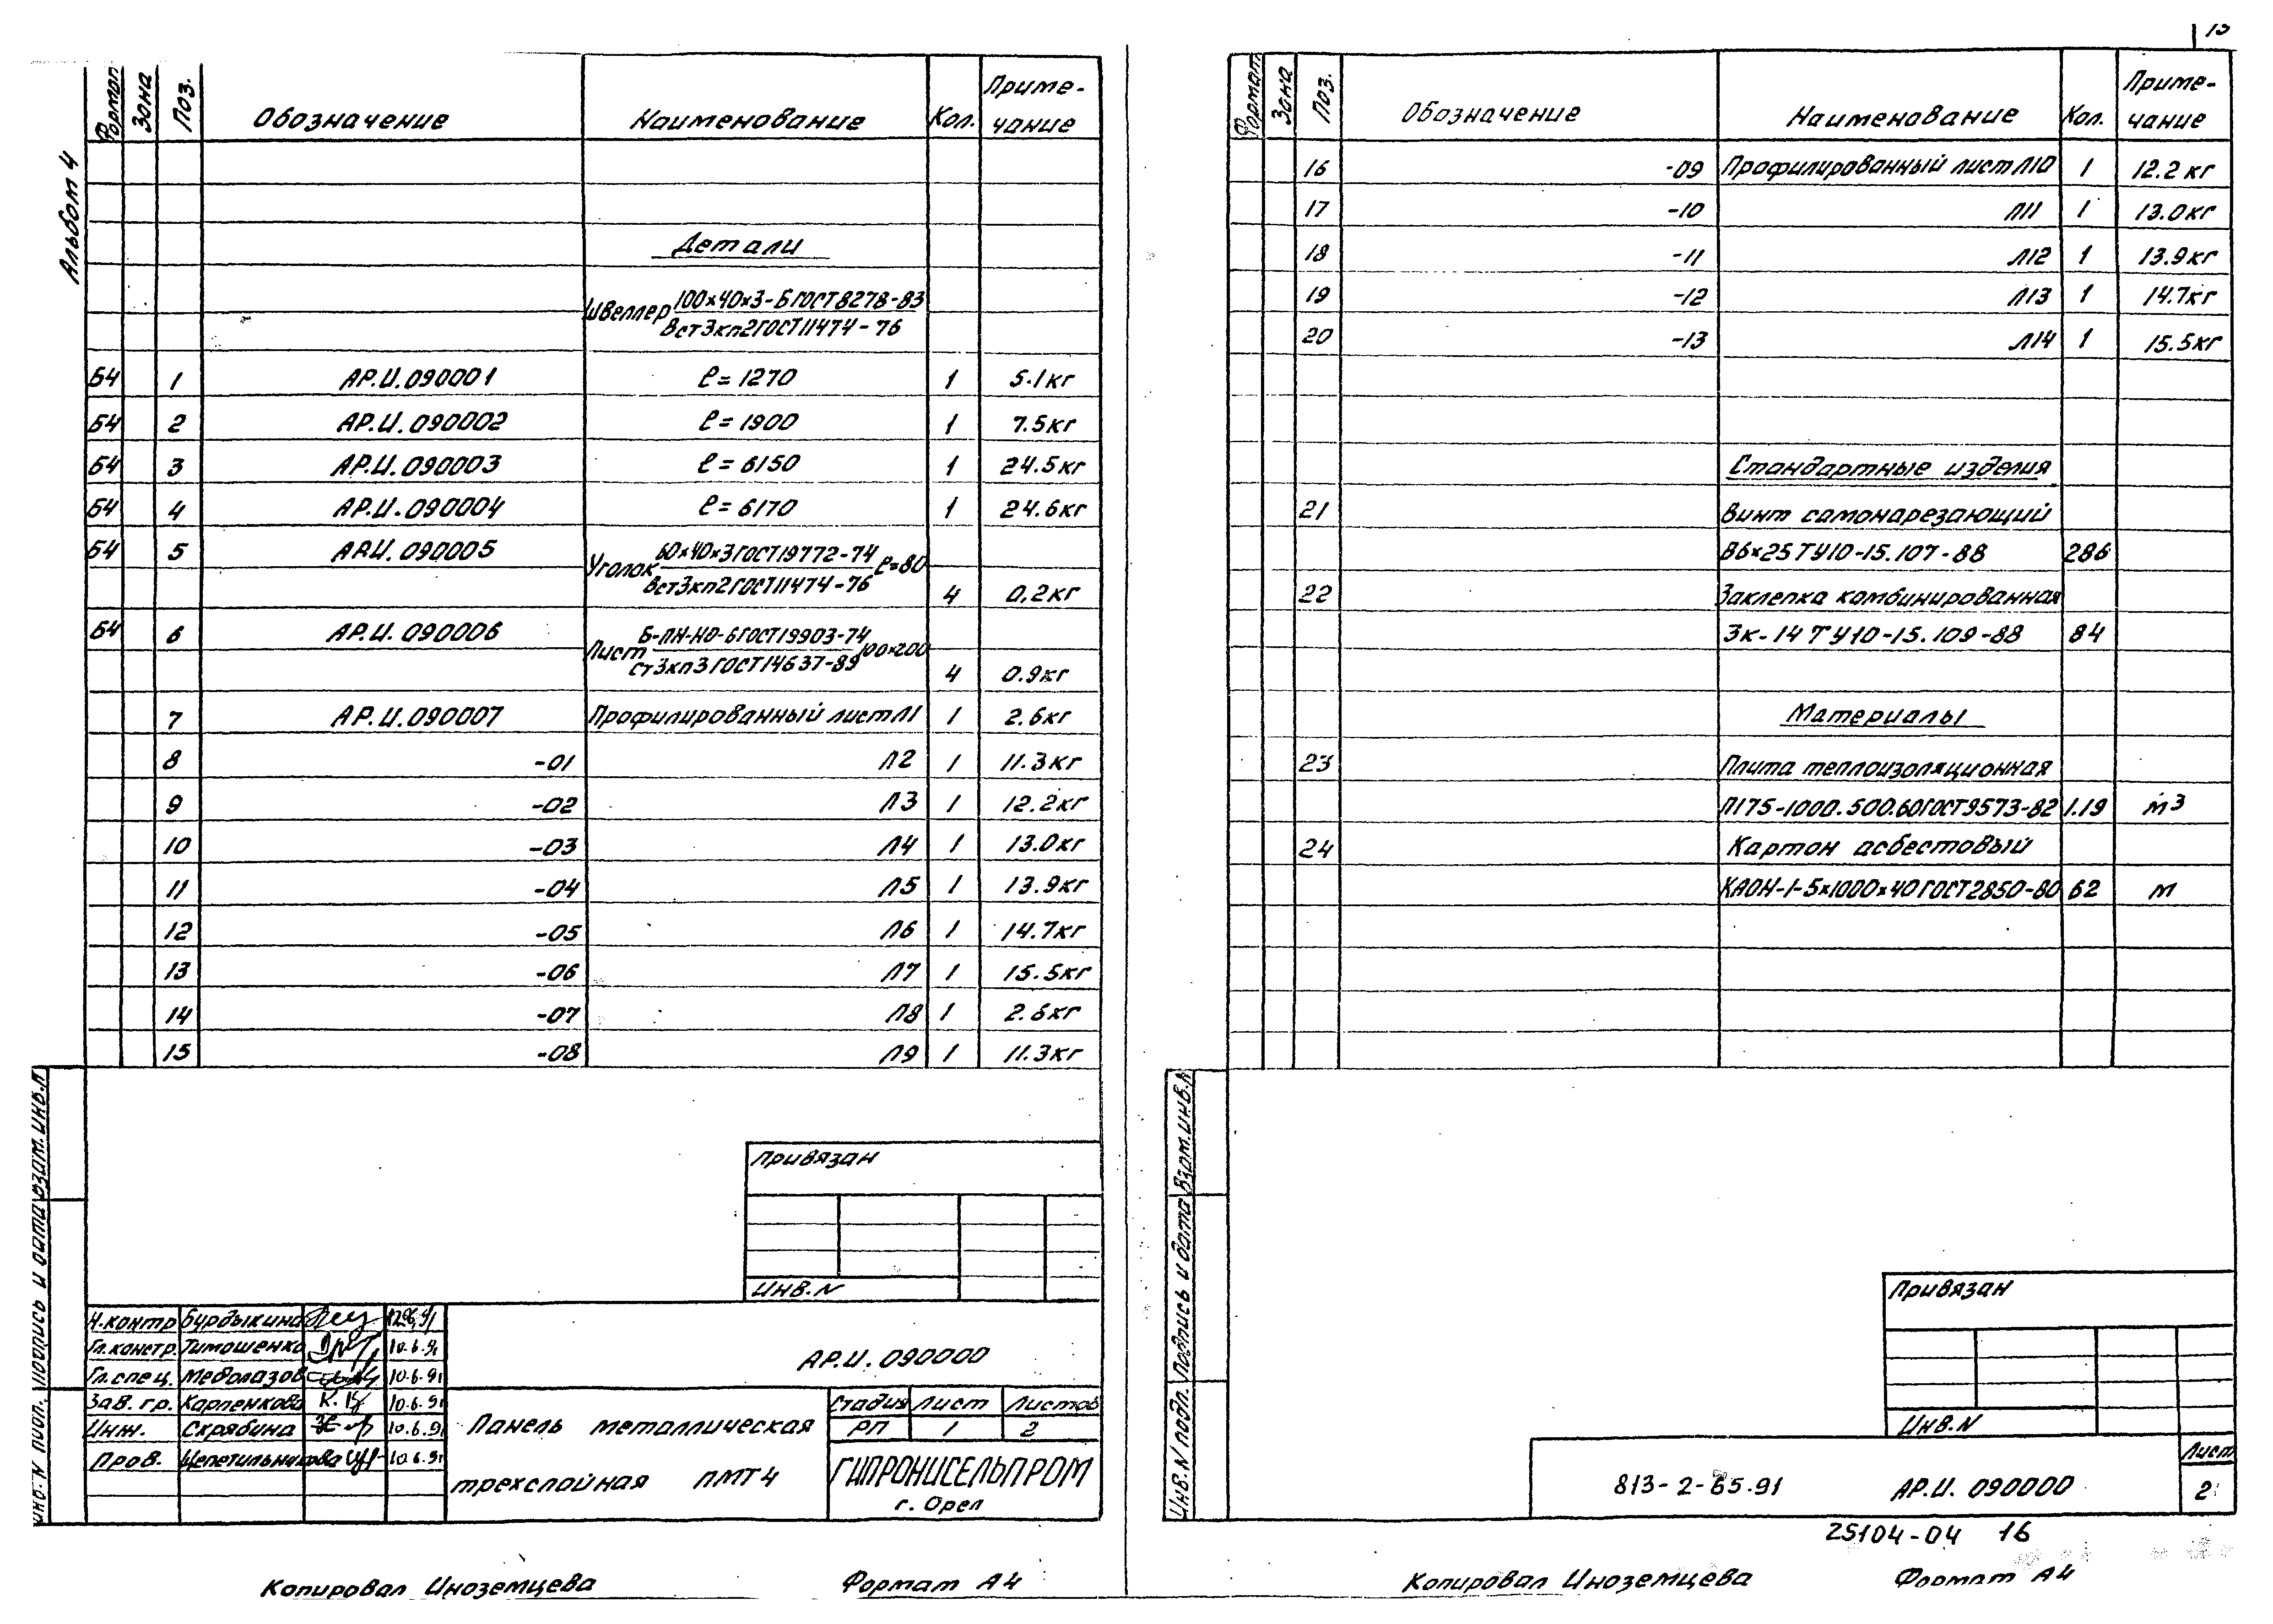 15
Альбом 4
Формат Зона Поз. Обозначение Наименование Кол. Приме-
чание
Детали
Швеллер 100×40×3-Б ГОСТ 8278-83
Вст3кп2 ГОСТ 11474-76
Б4 1 АР.И.090001 ℓ=1270 1 5.1кг
Б4 2 АР.И.090002 ℓ=1900 1 7.5кг
Б4 3 АР.И.090003 ℓ=6150 1 24.5кг
Б4 4 АР.И.090004 ℓ=6170 1 24.6кг
Б4 5 АР.И.090005 Уголок 60×40×3 ГОСТ 19772-74 ℓ=80
Вст3кп2 ГОСТ 11474-76 4 0,2кг
Б4 6 АР.И.090006 Лист Б-ПН-НО-6 ГОСТ 19903-74 100×200
ст3кп3 ГОСТ 14637-89 4 0.9кг
7 АР.И.090007 Профилированный лист Л1 1 2.6кг
8 -01 Л2 1 11.3кг
9 -02 Л3 1 12.2кг
10 -03 Л4 1 13.0кг
11 -04 Л5 1 13.9кг
12 -05 Л6 1 14.7кг
13 -06 Л7 1 15.5кг
14 -07 Л8 1 2.6кг
15 -08 Л9 1 11.3кг
Привязан
Инв.N
Н.контр Бурдыкина
Гл.констр. Тимошенко 10.6.91
Гл.спец. Медолазов 10.6.91
Зав. гр. Карпенкова 10.6.91
Инж. Скрябина 10.6.91
Пров. Щепетильникова 10.6.91
АР.И.090000
Панель металлическая
трехслойная ПМТ4
Стадия Лист Листов
РП 1 2
ГИПРОНИСЕЛЬПРОМ
г. Орел
Инв.N подл. Подпись и дата Взам.инв.N
Копировал Иноземцева Формат А4
Формат Зона Поз. Обозначение Наименование Кол. Приме-
чание
16 -09 Профилированный лист Л10 1 12.2кг
17 -10 Л11 1 13.0кг
18 -11 Л12 1 13.9кг
19 -12 Л13 1 14.7кг
20 -13 Л14 1 15.5кг
Стандартные изделия
21 Винт самонарезающий
В6×25 ТУ10-15.107-88 286
22 Заклепка комбинированная
Зк-14 ТУ10-15.109-88 84
Материалы
23 Плита теплоизоляционная
П175-1000.500.60 ГОСТ 9573-82 1.19 м3
24 Картон асбестовый
КАОН-1-5×1000×40 ГОСТ 2850-80 62 м
Инв.N подл. Подпись и дата Взам.инв.N
Привязан
Инв.N
813-2-65.91 АР.И.090000
Лист
2
25104-04 16
Копировал Иноземцева Формат А4